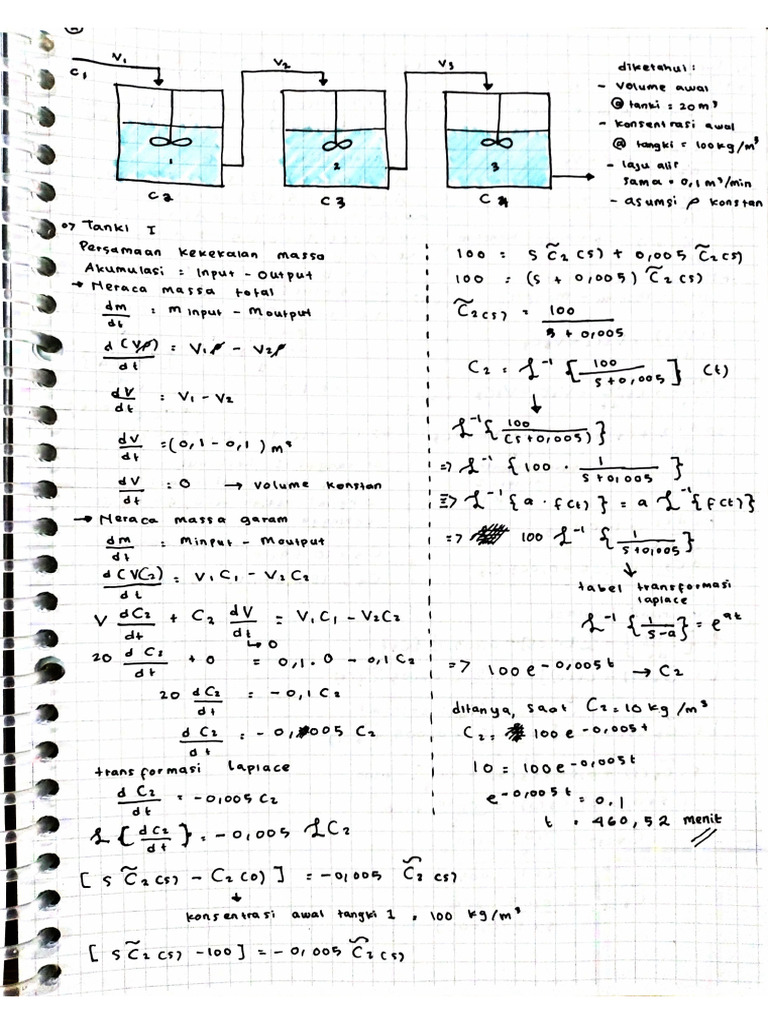 V₁
C₁
V₂
V₃
1
2
3
C2
C3
C4
diketahui :
- Volume awal
@ tanki = 20 m³
- konsentrasi awal
@ tangki = 100 kg/m³
- laju alir
sama = 0,1 m³/min
- asumsi ρ konstan
Tanki I
Persamaan kekekalan massa
Akumulasi = Input - Output
→ Neraca massa total
dm/dt = m input - m output
d(Vρ)/dt = V₁ρ - V₂ρ
dV/dt = V₁ - V₂
dV/dt = (0,1 - 0,1) m³
dV/dt = 0 → Volume konstan
→ Neraca massa garam
dm/dt = minput - moutput
d(VC₂)/dt = V₁C₁ - V₂C₂
V dC₂/dt + C₂ dV/dt = V₁C₁ - V₂C₂
↳ 0
20 dC₂/dt + 0 = 0,1 . 0 - 0,1 C₂
20 dC₂/dt = -0,1 C₂
dC₂/dt = -0,005 C₂
transformasi laplace
dC₂/dt = -0,005 C₂
ℒ{dC₂/dt} = -0,005 ℒC₂
[s C̃₂(s) - C₂(0)] = -0,005 C̃₂(s)
↓
konsentrasi awal tangki 1 = 100 kg/m³
[s C̃₂(s) - 100] = -0,005 C̃₂(s)
100 = s C̃₂(s) + 0,005 C̃₂(s)
100 = (s + 0,005) C̃₂(s)
C̃₂(s) = 100/(s + 0,005)
C₂ = ℒ⁻¹ {100/(s+0,005)} (t)
↓
ℒ⁻¹{100/(s+0,005)}
=> ℒ⁻¹ {100 . 1/(s+0,005)}
=> ℒ⁻¹{a . f(t)} = a ℒ⁻¹{f(t)}
=> 100 ℒ⁻¹ {1/(s+0,005)}
↓
tabel transformasi
laplace
ℒ⁻¹ {1/(s-a)} = e^at
=> 100 e^-0,005t → C₂
ditanya, saat C₂ = 10 kg/m³
C₂ = 100 e^-0,005t
10 = 100 e^-0,005t
e^-0,005t = 0,1
t = 460,52 menit